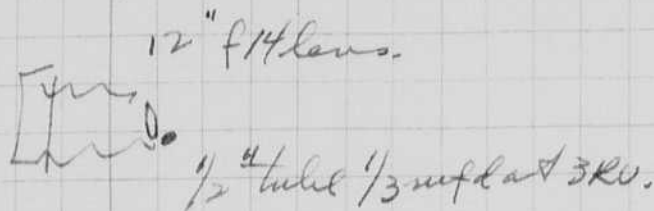 12" f14 lens.
1/2" tube 1/3 mfd at 3KV.